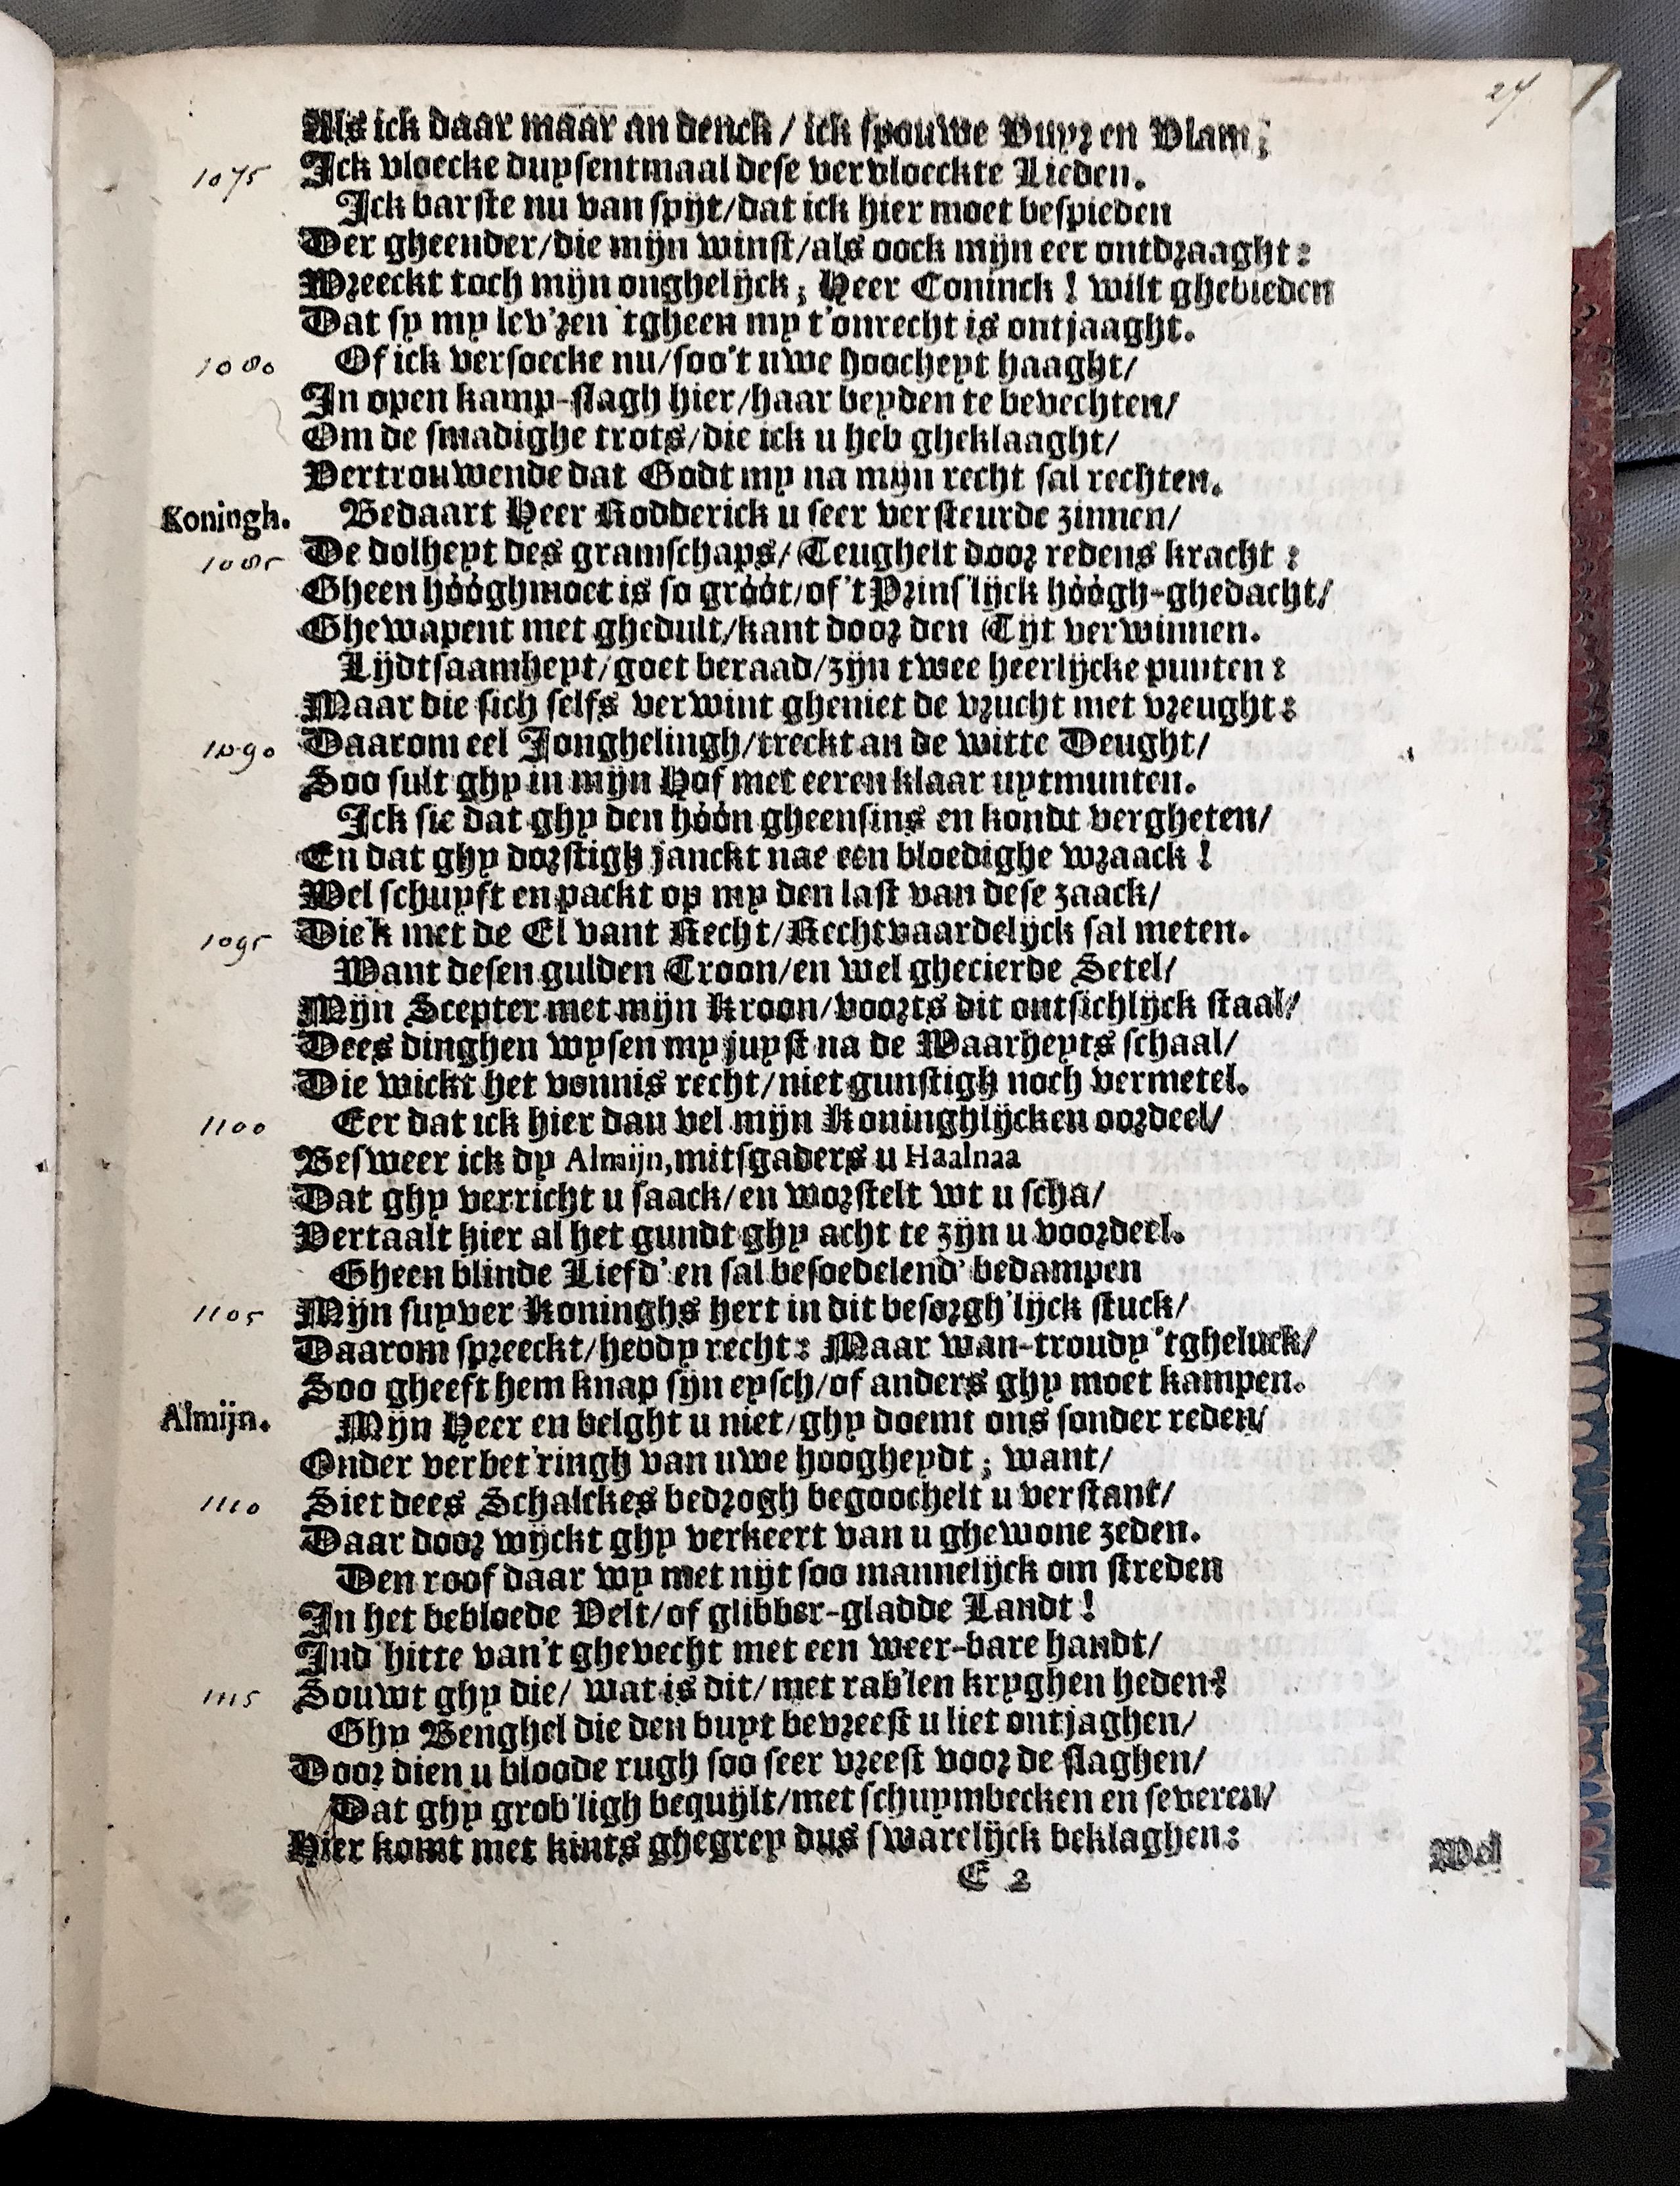 24
Als ick daar maar an denck / ick spouwe Vuyr en Vlam;
1075 Ick vloecke duysentmaal dese vervloeckte Lieden.
Ick barste nu van spijt/dat ick hier moet bespieden
Der gheender/die mijn winst/als oock mijn eer ontdraaght:
Wreeckt toch mijn onghelijck; Heer Coninck! wilt ghebieden
Dat sy my lev'ren 'tgheen my t'onrecht is ontjaaght.
1080 Of ick versoecke nu/soo't uwe hoocheyt haaght/
In open kamp-slagh hier/haar beyden te bevechten/
Om de smadighe trots/die ick u heb gheklaaght/
Vertrouwende dat Godt my na mijn recht sal rechten.
Koningh. Bedaart Heer Rodderick u seer versteurde zinnen/
1085 De dolheyt des gramschaps/Teughelt door redens kracht:
Gheen hóóghmoet is so gróót/of 't Prins'lijck hóógh-ghedacht/
Ghewapent met ghedult/kant door den Tijt verwinnen.
Lijdtsaamheyt/goet beraad/zijn twee heerlijcke punten:
Maar die sich selfs verwint gheniet de vrucht met vreught:
1090 Daarom eel Jonghelingh/treckt an de witte Deught/
Soo sult ghy in mijn Hof met eeren klaar uytmunten.
Ick sie dat ghy den hóón gheensins en kondt vergheten/
En dat ghy dorstigh janckt nae een bloedighe wraack!
Wel schuyft en packt op my den last van dese zaack/
1095 Die'k met de El vant Recht/Rechtvaardelijck sal meten.
Want desen gulden Troon/en wel ghecierde Setel/
Mijn Scepter met mijn Kroon/voorts dit ontsichlijck staal/
Dees dinghen wysen my juyst na de Waarheyts schaal/
Die wickt het vonnis recht/niet gunstigh noch vermetel.
1100 Eer dat ick hier dan vel mijn Koninghlijcken oordeel/
Besweer ick dy Almijn, mitsgaders u Haalnaa
Dat ghy verricht u saack/en worstelt wt u scha/
Vertaalt hier al het gundt ghy acht te zijn u voordeel.
Gheen blinde Liefd' en sal besoedelend' bedampen
1105 Mijn suyver Koninghs hert in dit besorgh'lijck stuck/
Daarom spreeckt/hebdy recht: Maar wan-troudy 'tgheluck/
Soo gheeft hem knap sijn eysch/of anders ghy moet kampen.
Almijn. Mijn Heer en belght u niet/ghy doemt ons sonder reden/
Onder verbet'ringh van uwe hoogheydt; want/
1110 Siet dees Schalckes bedrogh begoochelt u verstant/
Daar door wijckt ghy verkeert van u ghewone zeden.
Den roof daar wy met nijt soo mannelijck om streden
In het bebloede Velt/of glibber-gladde Landt!
Ind' hitte van't ghevecht met een weer-bare handt/
1115 Souwt ghy die/ wat is dit/met rab'len kryghen heden?
Ghy Benghel die den buyt bevreest u liet ontjaghen/
Door dien u bloode rugh soo seer vreest voor de slaghen/
Dat ghy grob'ligh bequijlt/met schuymbecken en severen/
Hier komt met kints ghegrey dus swarelijck beklaghen:
E 2
Wel